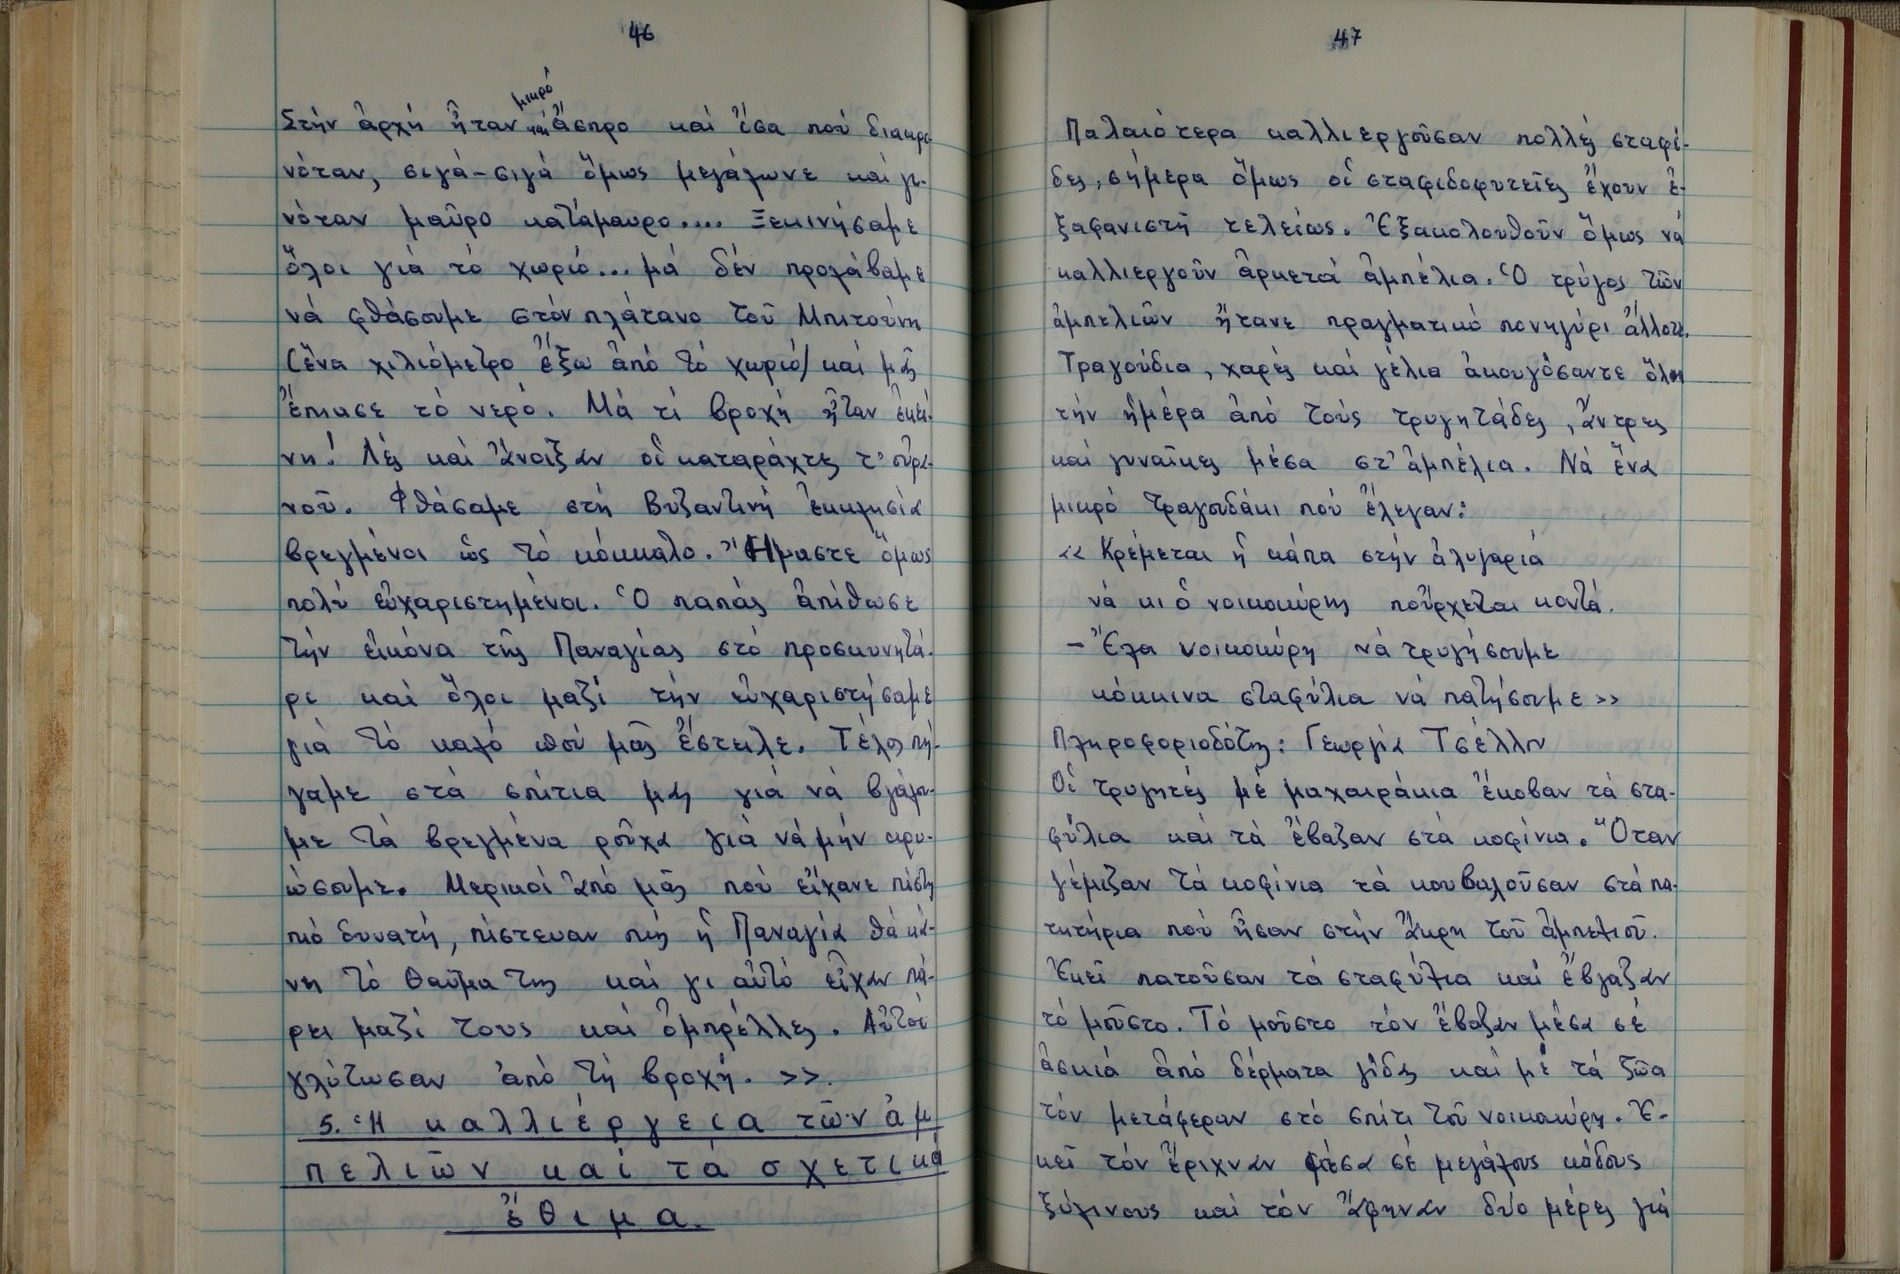 46
μικρό
Στήν ἀρχή ἦταν καί ἄσπρο καί ἴσα πού διακρι-
νόταν, σιγά-σιγά ὅμως μεγάλωνε καί γι-
νόταν μαῦρο κατάμαυρο.... Ξεκινήσαμε
ὅλοι γιά τό χωριό... μά δέν προλάβαμε
νά φθάσουμε στόν πλάτανο τοῦ Μπιτούνη
(ἕνα χιλιόμετρο ἔξω ἀπό τό χωριό) καί μᾶς
ἔπιασε τό νερό. Μά τί βροχή ἦταν ἐκεί-
νη! Λές καί ἄνοιξαν οἱ καταράχτες τ' οὐρα-
νοῦ. Φθάσαμε στή Βυζαντινή ἐκκλησία
βρεγμένοι ὡς τό κόκκαλο. Ἤμαστε ὅμως
πολύ εὐχαριστημένοι. Ὁ παπάς ἀπίθωσε
τήν εἰκόνα τῆς Παναγίας στό προσκυνητά-
ρι καί ὅλοι μαζί τήν εὐχαριστήσαμε
γιά τό καλό πού μᾶς ἔστειλε. Τέλος πή-
γαμε στά σπίτια μας γιά νά βγάλου-
με τά βρεγμένα ροῦχα γιά νά μήν κρυ-
ώσουμε. Μερικοί ἀπό μᾶς πού εἴχανε πίστη
πιό δυνατή, πίστευαν πώς ἡ Παναγία θά κά-
νη τό θαῦμα της καί γι αὐτό εἶχαν πά-
ρει μαζί τους καί ὀμπρέλλες. Αὐτοί
γλύτωσαν ἀπό τή βροχή. >>.
5. Ἡ καλλιέργεια τῶν ἀμ
πελιῶν καί τά σχετικά
ἔθιμα.
47
Παλαιότερα καλλιεργοῦσαν πολλές σταφί-
δες, σήμερα ὅμως οἱ σταφιδοφυτεῖες ἔχουν ἐ-
ξαφανιστῆ τελείως. Ἐξακολουθοῦν ὅμως νά
καλλιεργοῦν ἀρκετά ἀμπέλια. Ὁ τρύγος τῶν
ἀμπελιῶν ἤτανε πραγματικό πανηγύρι ἄλλοτε.
Τραγούδια, χαρές καί γέλια ἀκουγόσαντε ὅλη
τήν ἡμέρα ἀπό τούς τρυγητάδες, ἄντρες
καί γυναῖκες μέσα στ' ἀμπέλια. Νά ἕνα
μικρό τραγουδάκι πού ἔλεγαν:
« Κρέμεται ἡ κάπα στήν ἀλυγαριά
νά κι ὁ νοικοκύρης πού̓ρχεται κοντά.
- Ἔλα νοικοκύρη νά τρυγήσουμε
κόκκινα σταφύλια νά πατήσουμε >>
Πληροφοριοδότης: Γεωργία Τσέλλου
Οἱ τρυγητές μέ μαχαιράκια ἔκοβαν τά στα-
φύλια καί τά ἔβαζαν στά κοφίνια. Ὅταν
γέμιζαν τά κοφίνια τά κουβαλοῦσαν στά πα-
τητήρια πού ἦσαν στήν ἄκρη τοῦ ἀμπελιοῦ.
Ἐκεῖ πατοῦσαν τά σταφύλια καί ἔβγαζαν
τό μοῦστο. Τό μοῦστο τόν ἔβαζαν μέσα σέ
ἀσκιά ἀπό δέρματα γίδας καί μέ τά ζῶα
τόν μετάφεραν στό σπίτι τοῦ νοικοκύρη. Ἐ-
κεῖ τόν ἔριχναν μέσα σέ μεγάλους κάδους
ξύλινους καί τόν ἄφηναν δύο μέρες γιά